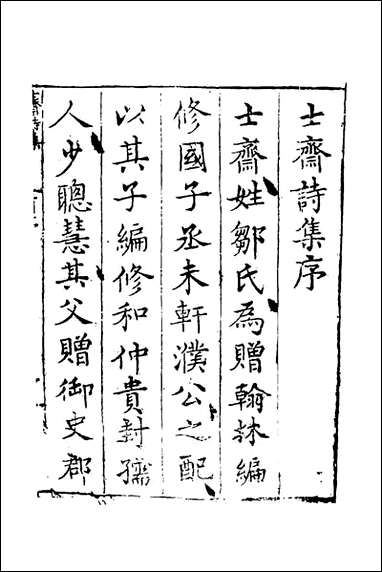 士齋詩集序
士齋姓鄒氏為贈翰林編
修國子丞未軒濮公之配
以其子編修和仲貴封孺
人少聰慧其父贈御史郡